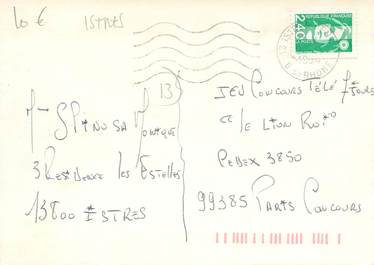 10 €
ISTRES
REPUBLIQUE FRANÇAISE
2,40
LA POSTE
13 IST
B. DU RHONE
13
Mme SPINOSA Monique
3 Residence les Estelles
13800 ISTRES
JEU CONCOURS L'ÉLÉ 7 JOURS
LE LION
Pellex 3850
99385 PARIS CONCOURS